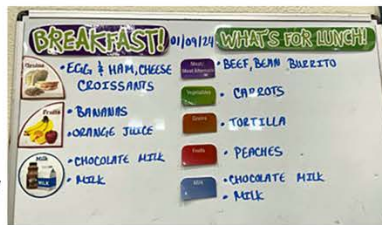 BREAKFAST! 01/09/24 WHAT'S FOR LUNCH!
Grains
• EGG & HAM, CHEESE
CROISSANTS
Fruits
• BANANAS
• ORANGE JUICE
Milk
MILK
• CHOCOLATE MILK
• MILK
Meat/
Meat Alternate
• BEEF, BEAN BURRITO
Vegetables
• CARROTS
Grains
• TORTILLA
Fruits
• PEACHES
Milk
• CHOCOLATE MILK
• MILK